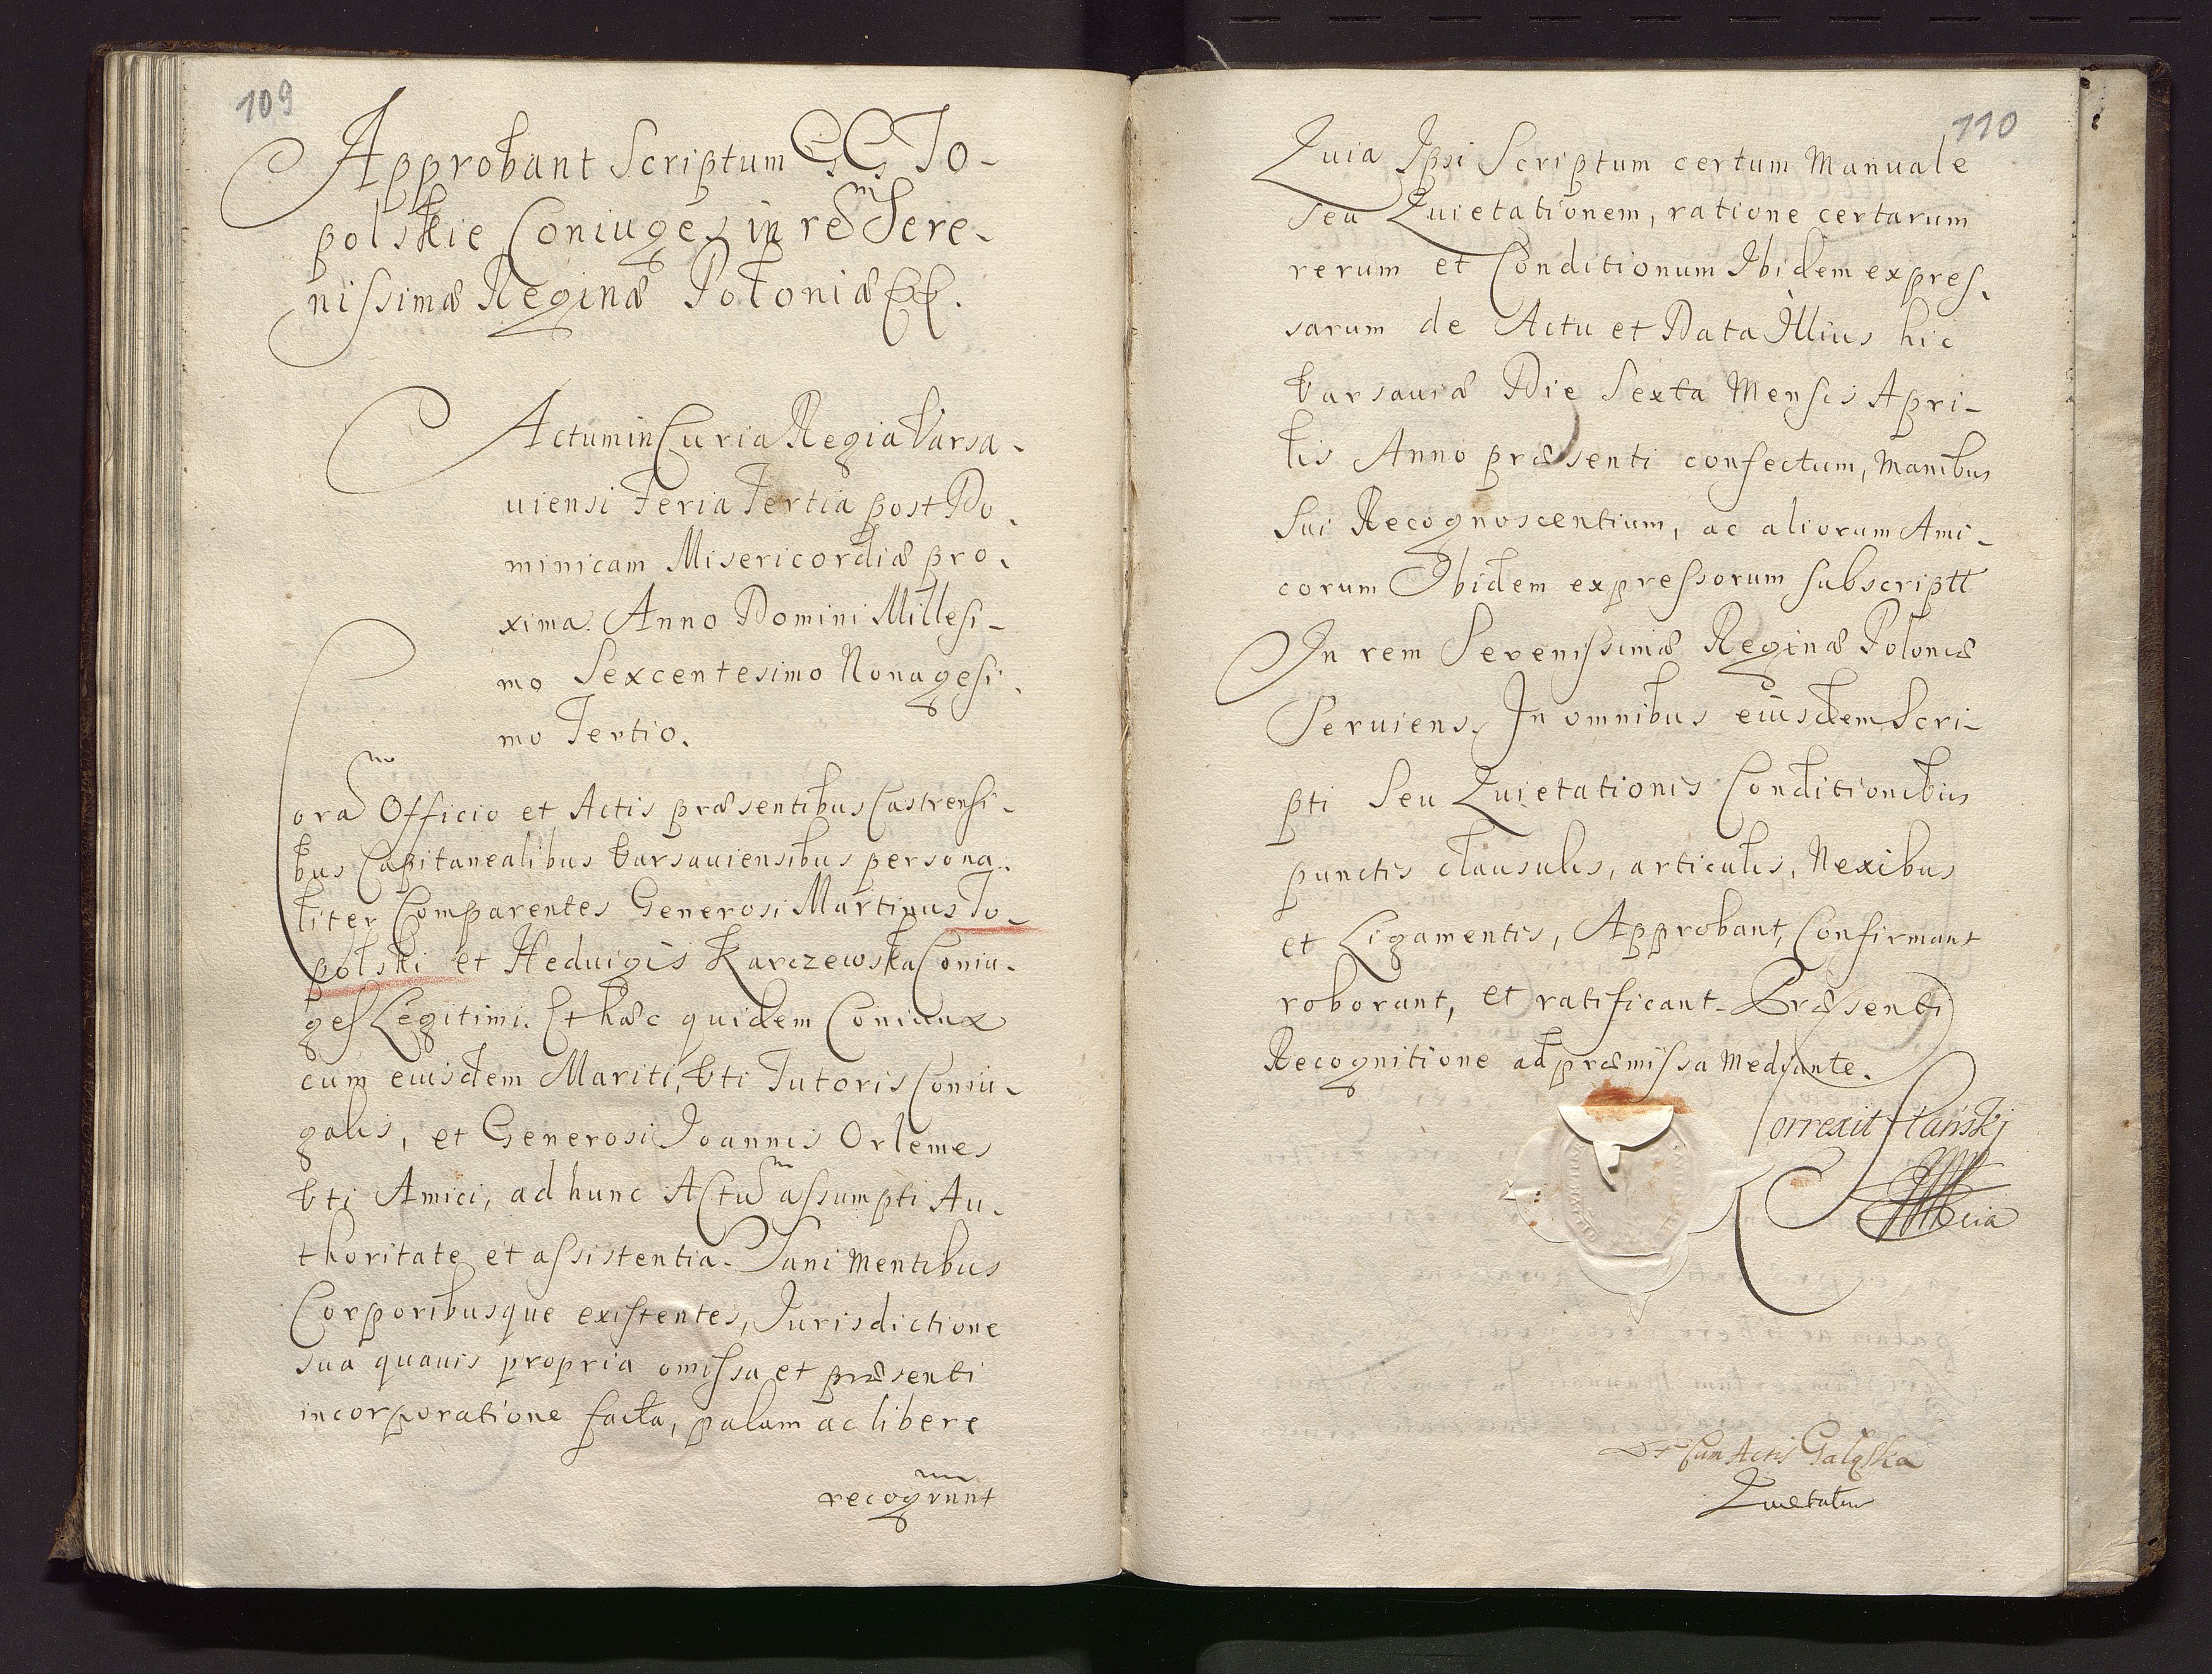 109
Approbant Scriptum GG To-
polskie Coniuges in rem Sere-
nissimæ Reginæ Poloniæ
Actum in Curia Regia Varsa-
uiensi Feria Tertia post Do-
minicam Misericordiæ pro-
xima. Anno Domini Millesi-
mo Sexcentesimo Nonagesi-
mo Tertio.
Coram Officio et Actis præsentibus Castrensi-
bus Capitanealibus Varsauiensibus persona-
liter Comparentes Generosi Martinus To-
polski et Heduigis Karczewska Coniu-
ges Legitimi. Et hæc quidem Coniunx
cum eiusdem Mariti, Vti Tutoris Coniu-
galis, et Generosi Joannis Orlemes
Vti Amici, ad hunc Actum assumpti Au-
thoritate et assistentia. Sani Mentibus
Corporibusque existentes, Jurisdictione
sua quauis propria omissa et præsenti
incorporatione facta, palam ac libere
recogrunt
110
Quia Ipsi Scriptum certum Manuale
seu Quietationem, ratione certarum
rerum et Conditionum Ibidem expres-
sarum de Actu et Data Illius hic
Varsauiæ Die Sexta Mensis Apri-
lis Anno præsenti confectum, Manibus
Sui Recognoscentium, ac aliorum Ami-
corum Ibidem expressorum subscriptt
In rem Serenissimæ Reginæ Poloniæ
Seruiens. In omnibus eiusdem Scri-
pti Seu Quietationis Conditionibus
punctis clausulis, articulis, Nexibus
et Ligamentis, Approbant, Confirmant
roborant, et ratificant. Præsenti
Recognitione ad præmissa Mediante.
Correxit Stański
Cum Actis
Quietatur